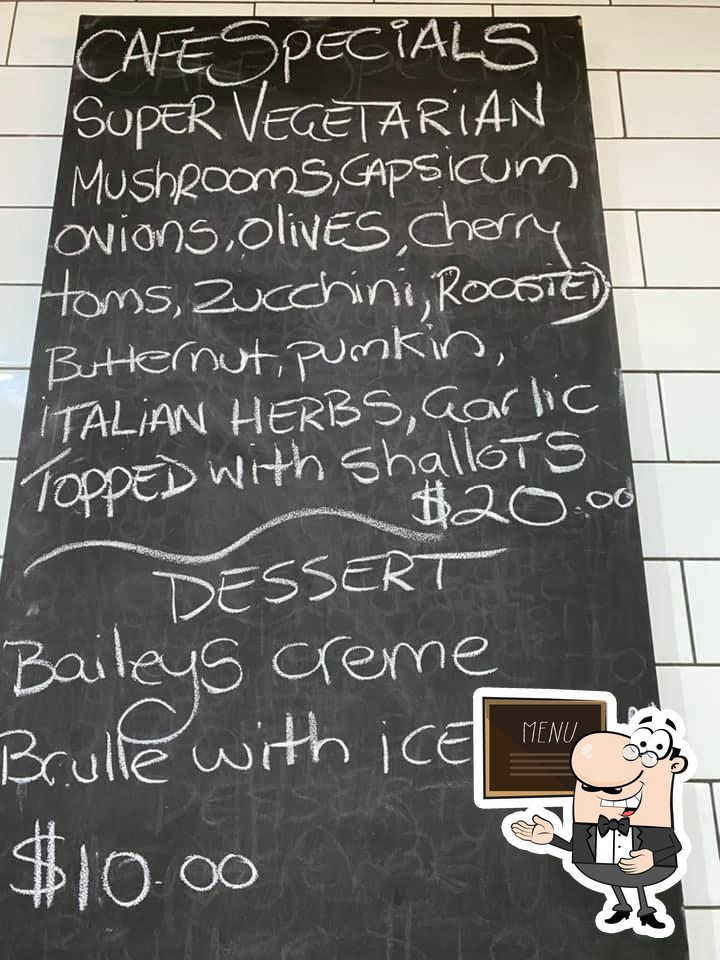 CAFE SPECIALS
SUPER VEGETARIAN
MUSHROOMS, CAPSICUM
ONIONS, OLIVES, Cherry
toms, Zucchini, ROOSTED
Butternut, pumkin,
ITALIAN HERBS, Garlic
TOPPED with shallOTS
$20.00
DESSERT
Baileys creme
Brulle with iCE
$10.00
MENU